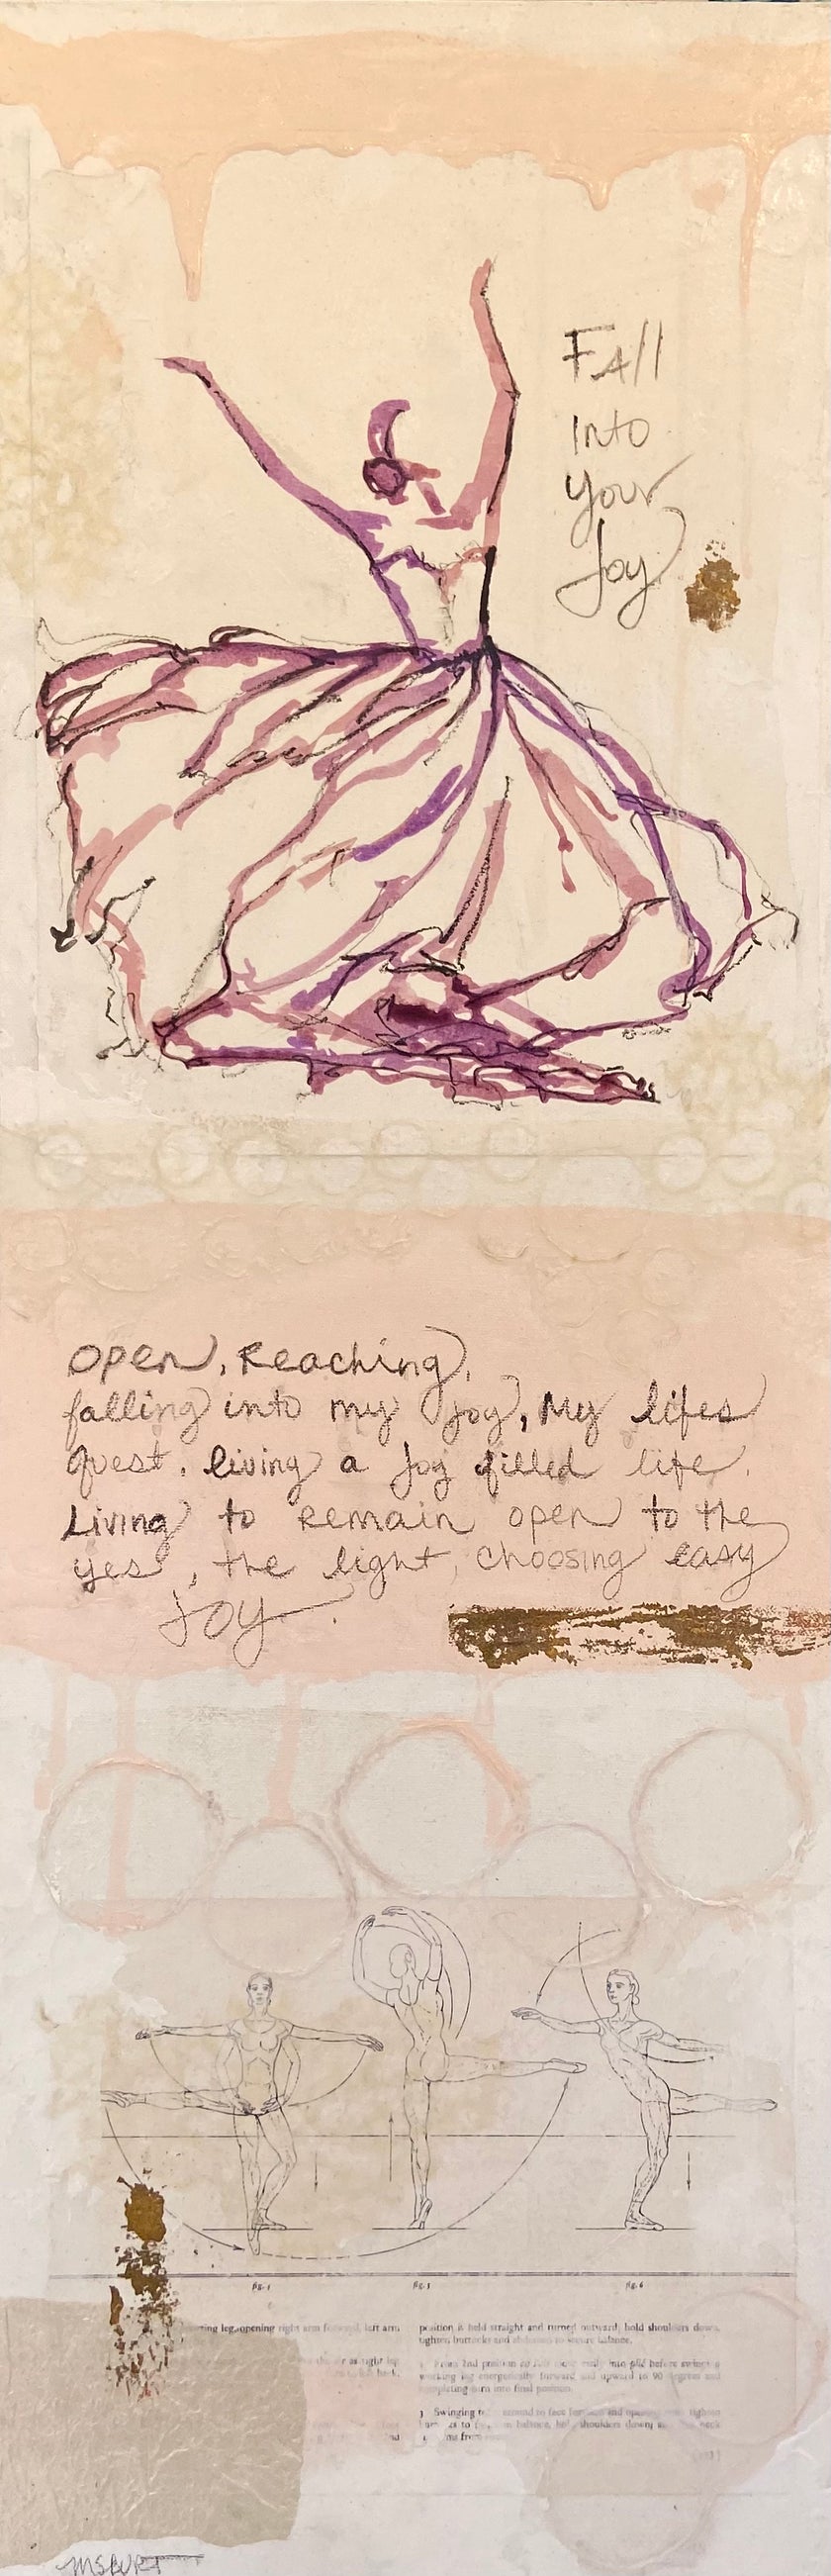 Fall
Into
Your
Joy
Open, Reaching,
falling into my joy, My lifes
quest, living a joy filled life.
Living to remain open to the
yes, the light, choosing easy
Joy.
fig. 5
fig. 6
leg, opening right arm left arm
position is held straight and turned outward, hold shoulders down,
tighten buttocks and abdomen to secure balance.
as right leg
From 2nd position into plié before swinging
working leg energetically forward and upward to 90 degrees and
completing turn into final position.
3 Swinging to face and opening tighten
to balance, hold shoulders down, neck
from
MSBURT